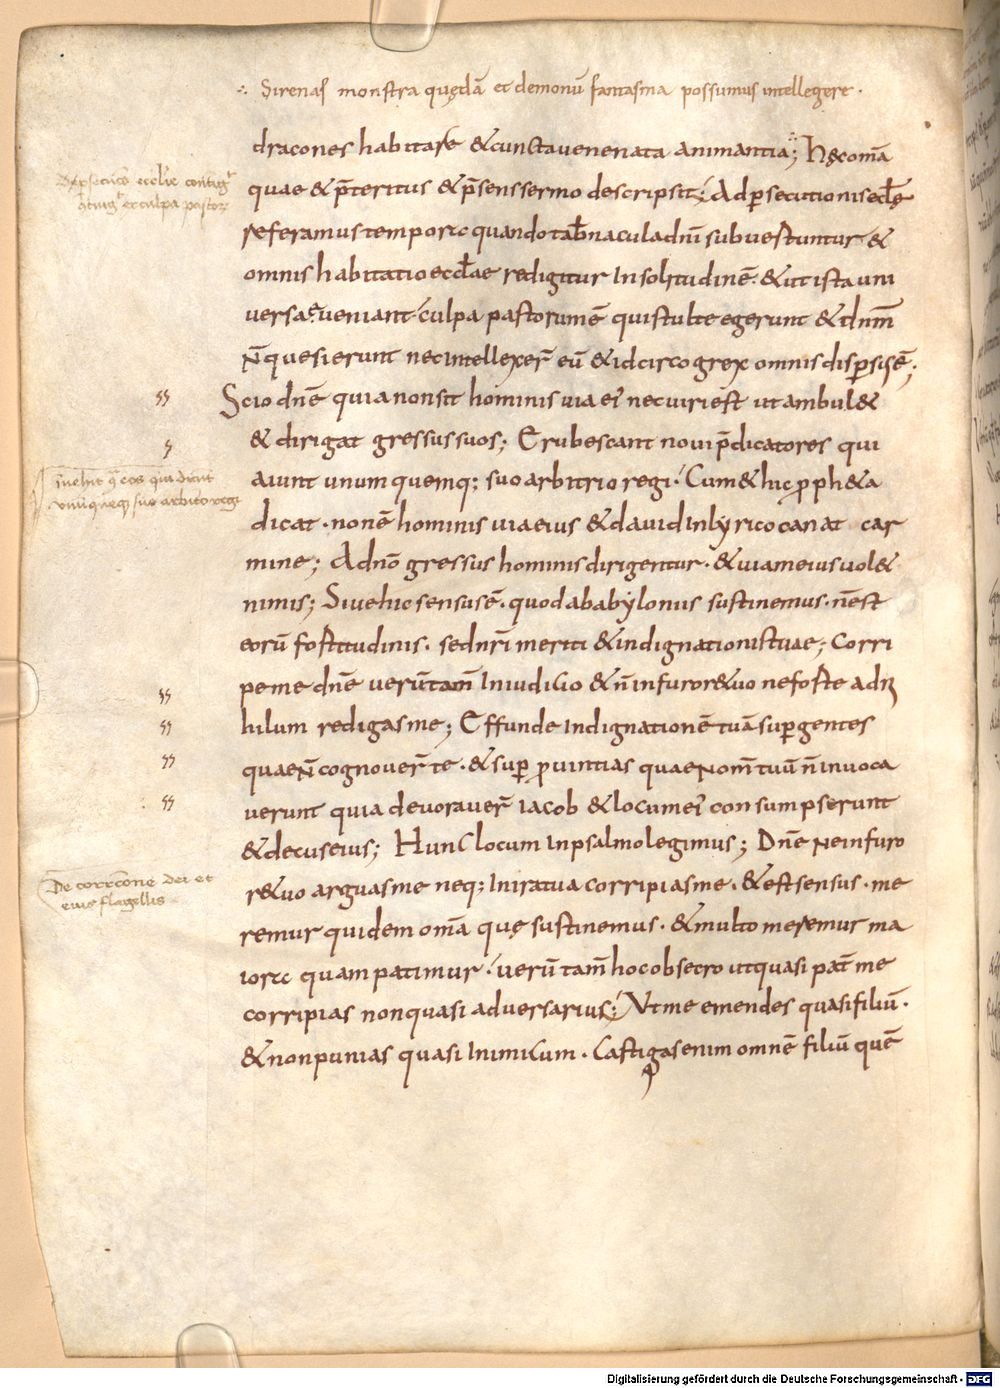 ∴ Sirenas monstra quędā et demonū fantasma possumus intellegere ·
dracones habitare & cuncta venenata animantia; Hęc omīa
quae & p̄teritus & p̄sens sermo descripsit; Ad persecutionis eccłę
referamus tempore quando tab̄nacula dn̄i subvertuntur &
omnis habitatio ecctae redigitur In solitudinē · & ut ista uni
versa eveniant culpa pastorum ē qui stulte egerunt & dn̄m
n̄ quesierunt nec intellexer̄ eū & idcirco grex omnis dispersus ē;
Scio dn̄e quia non sit hominis via ei' nec viri est ut ambul&
& dirigat gressus suos; Erubescant novi p̄dicatores qui
aiunt unum quemq; suo arbitrio regi · Cum & hic proph&a
dicat · non ē hominis via eius & david in lyrico canat car
mine; A dn̄o gressus hominis dirigentur · & viam eius vol&
nimis; Sive hic sensus ē · quod a babylonus sustinemus · n̄ est
eorū fortitudinis · sed nr̄i meriti & indignationis tuae; Corri
pe me dn̄e verūtam̄ In iudicio & n̄ in furore tuo ne forte ad ni
hilum redigas me; Effunde Indignationē tuā super gentes
quae n̄ cognover̄ te · & super provintias quae nom̄ tuū n̄ invoca
verunt quia devoraver̄ iacob & locum ei' consumpserunt
& decus eius; Hunc locum In psalmo legimus; Dn̄e ne in furo
re tuo arguas me neq; In ira tua corripias me · & est sensus · me
remur quidem omīa quę sustinemus · & multo meremur ma
iore quam patimur · verūtam̄ hoc obsecro ut quasi pat̄ me
corripias non quasi adversarius; Ut me emendes quasi filiū ·
& non punias quasi Inimicum · Castigas enim omnē filiū quē
Inuehit' q̄ eos qui dicūt
unūquēq; suo arbit'o regi
De correōne dei et
eius flagellis
Digitalisierung gefördert durch die Deutsche Forschungsgemeinschaft - DFG